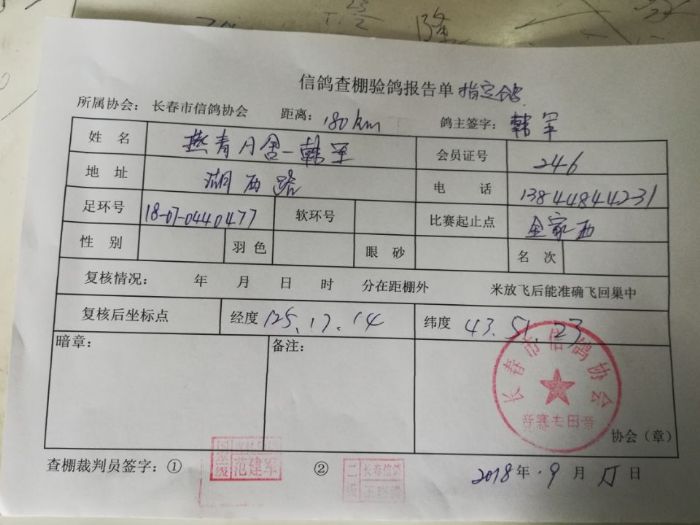 信鸽查棚验鸽报告单 指定鸽
所属协会：长春市信鸽协会 距离：180km 鸽主签字：韩军
姓 名 燕青A舍-韩军 会员证号 246
地 址 湖西路 电 话 13844844231
足环号 18-07-0440477 软环号 比赛起止点
性 别 羽色 眼 砂 名 次
复核情况： 年 月 日 时 分在距棚外 米放飞后能准确飞回巢中
复核后坐标点 经度 125.17.14 纬度 43.51.23
暗章： 备注：
长春市信鸽协会
竞赛专用章
协会（章）
查棚裁判员签字：① 范建军 ② 二级 长春信鸽
2018年.9月15日